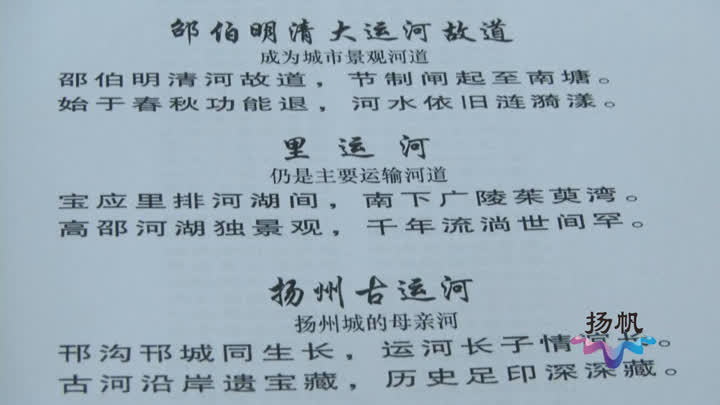 邵伯明清大运河故道
成为城市景观河道
邵伯明清河故道，节制闸起至南塘。
始于春秋功能退，河水依旧涟漪漾。
里运河
仍是主要运输河道
宝应里排河湖间，南下广陵茱萸湾。
高邵河湖独景观，千年流淌世间罕。
扬州古运河
扬州城的母亲河
邗沟邗城同生长，运河长子情 长。
古河沿岸遗宝藏，历史足印深深藏。
扬帆